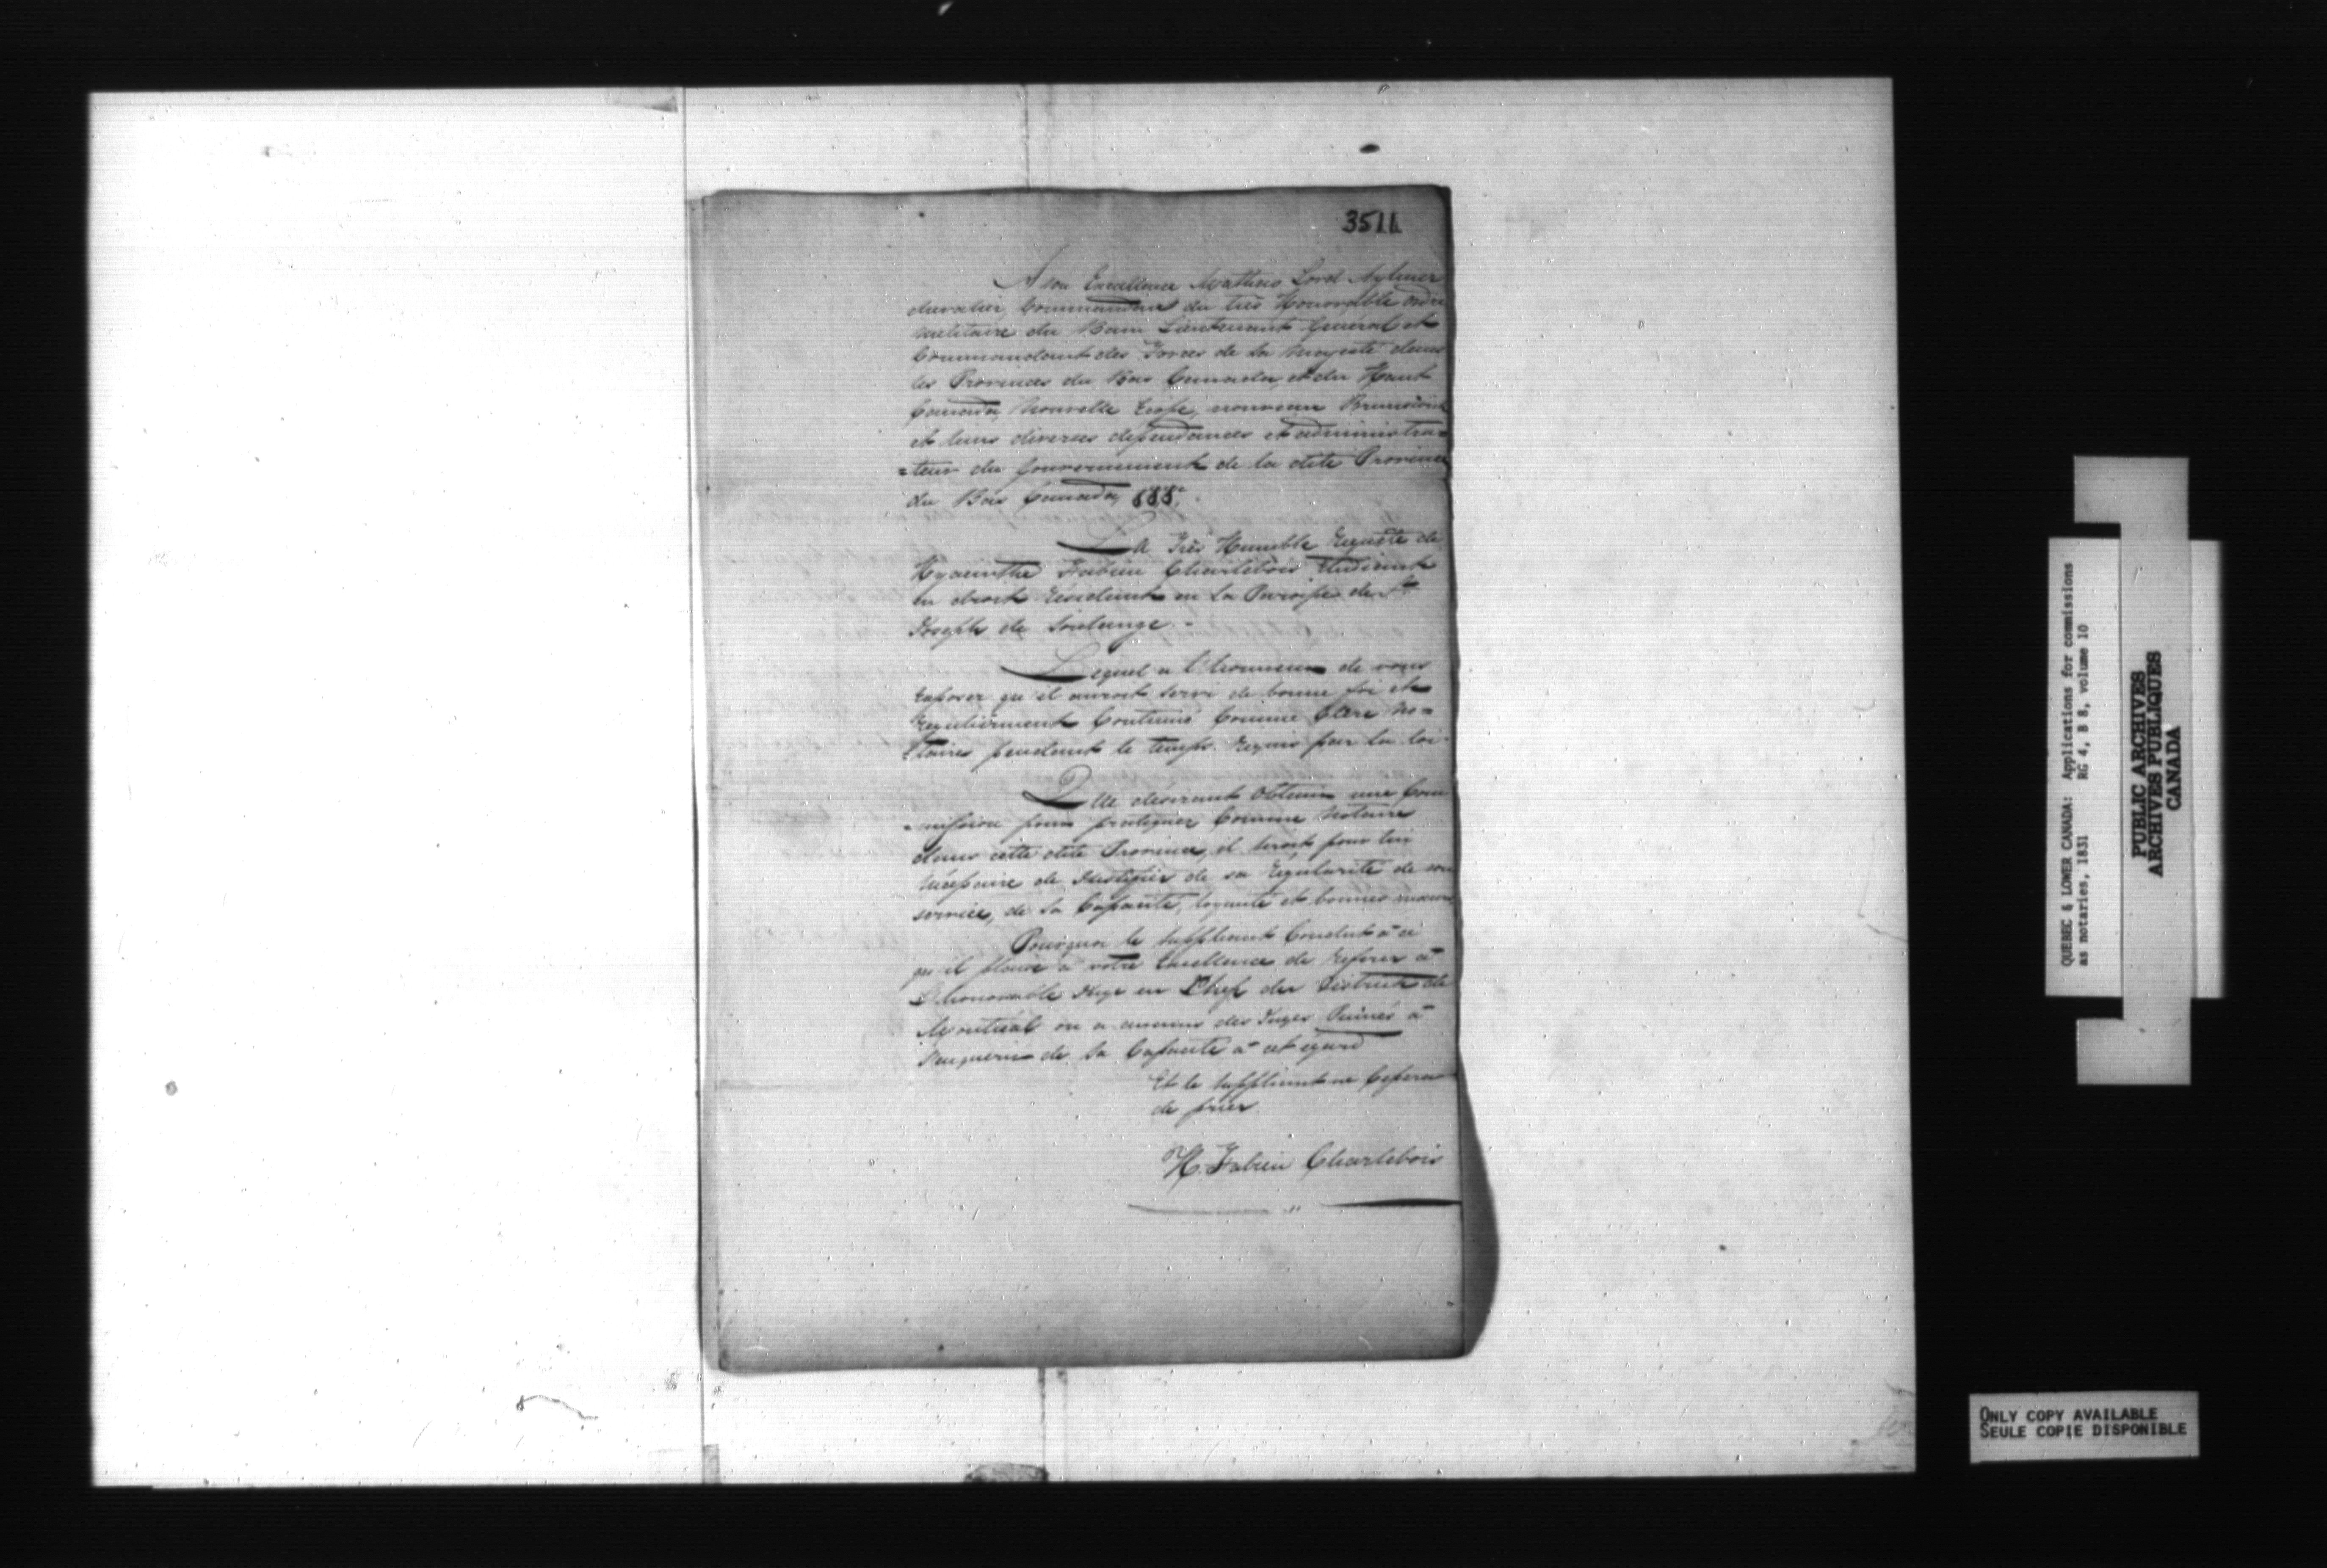 3511
A son Excellence Matthew Lord Aylmer
chevalier, Commandeur du très Honorable ordre
militaire du Bain Lieutenant Général et
Commandant des Forces de sa Majesté dans
les Provinces du Bas Canada, et du Haut
Canada, Nouvelle Ecosse, nouveau Brunswick
et leurs diverses dépendances et administra=
=teur du Gouvernement de la dite Province
du Bas Canada, &&&.
La Très Humble Requête de
Hyacinthe Fabien Charlebois Etudiant
en droit Résidant en la Paroisse de St
Joseph de Soulange. -
Lequel a l'honneur de vous
Exposer qu'il auroit servi de bonne foi et
Régulièrement Continué Comme Clerc No=
taires pendant le temps Requis par la loi.
Que désirant Obtenir une Com
=mission pour pratiquer Comme Notaire
dans cette dite Province, il seroit pour lui
Nécessaire de Justifier de sa Régularité de son
service, de sa Capacité, loyauté et bonnes moeurs
Pourquoi le suppliant Conclut à ce
qu'il plaise à votre Excellence de Référer à
L'honorable Juge en Chef du District de
Montréal ou a aucuns des Juges Puinés à
S'enquérir de sa Capacité à cet égard
Et le suppliant ne Cessera
de prier.
H. Fabien Charlebois
QUEBEC & LOWER CANADA: Applications for commissions
as notaries, 1831 RG 4, B 8, volume 10
PUBLIC ARCHIVES
ARCHIVES PUBLIQUES
CANADA
ONLY COPY AVAILABLE
SEULE COPIE DISPONIBLE